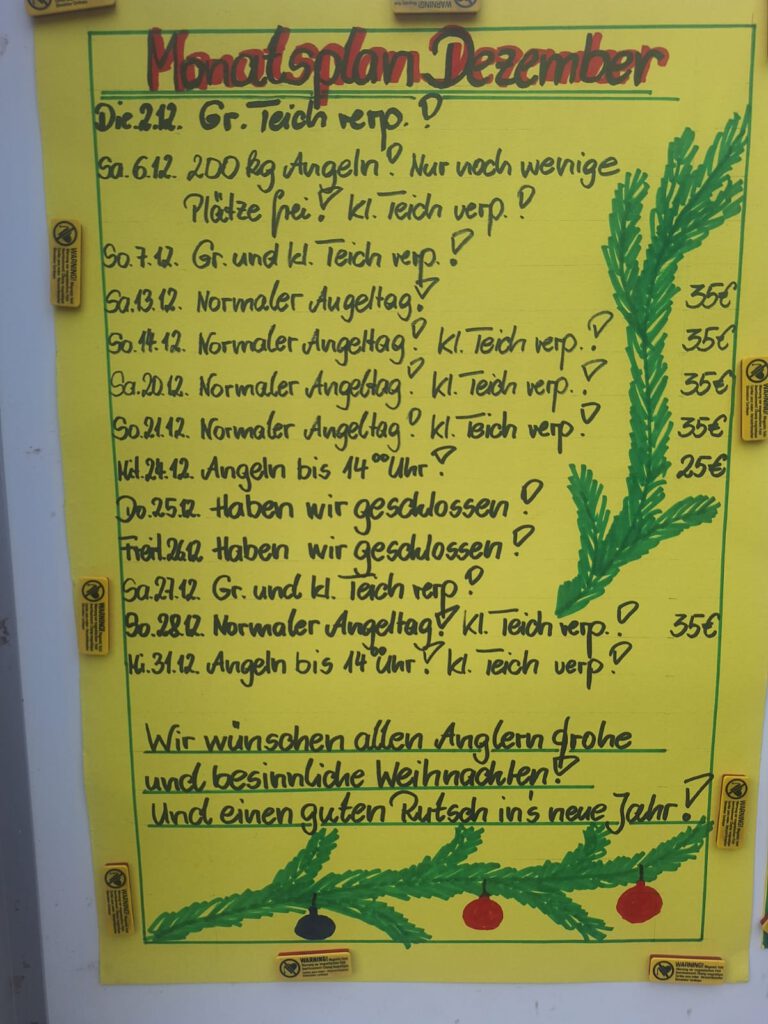 Monatsplan Dezember
Die.2.12. Gr. Teich verp.!
Sa.6.12. 200 kg Angeln! Nur noch wenige
Plätze frei! Kl. Teich verp.!
So.7.12. Gr. und Kl. Teich verp.!
Sa.13.12. Normaler Angeltag! 35€
So.14.12. Normaler Angeltag! Kl. Teich verp.! 35€
Sa.20.12. Normaler Angeltag! Kl. Teich verp.! 35€
So.21.12. Normaler Angeltag! Kl. Teich verp.! 35€
Mi.24.12. Angeln bis 14°° Uhr! 25€
Do.25.12. Haben wir geschlossen!
Freit.26.12 Haben wir geschlossen!
Sa.27.12. Gr. und Kl. Teich verp!
So.28.12. Normaler Angeltag! Kl. Teich verp.! 35€
Mi.31.12. Angeln bis 14°° Uhr! Kl. Teich verp!
Wir wünschen allen Anglern frohe
und besinnliche Weihnachten!
Und einen guten Rutsch in's neue Jahr!
WARNING!
WARNING!
WARNING!
WARNING!
WARNING!
WARNING!
WARNING!
WARNING!